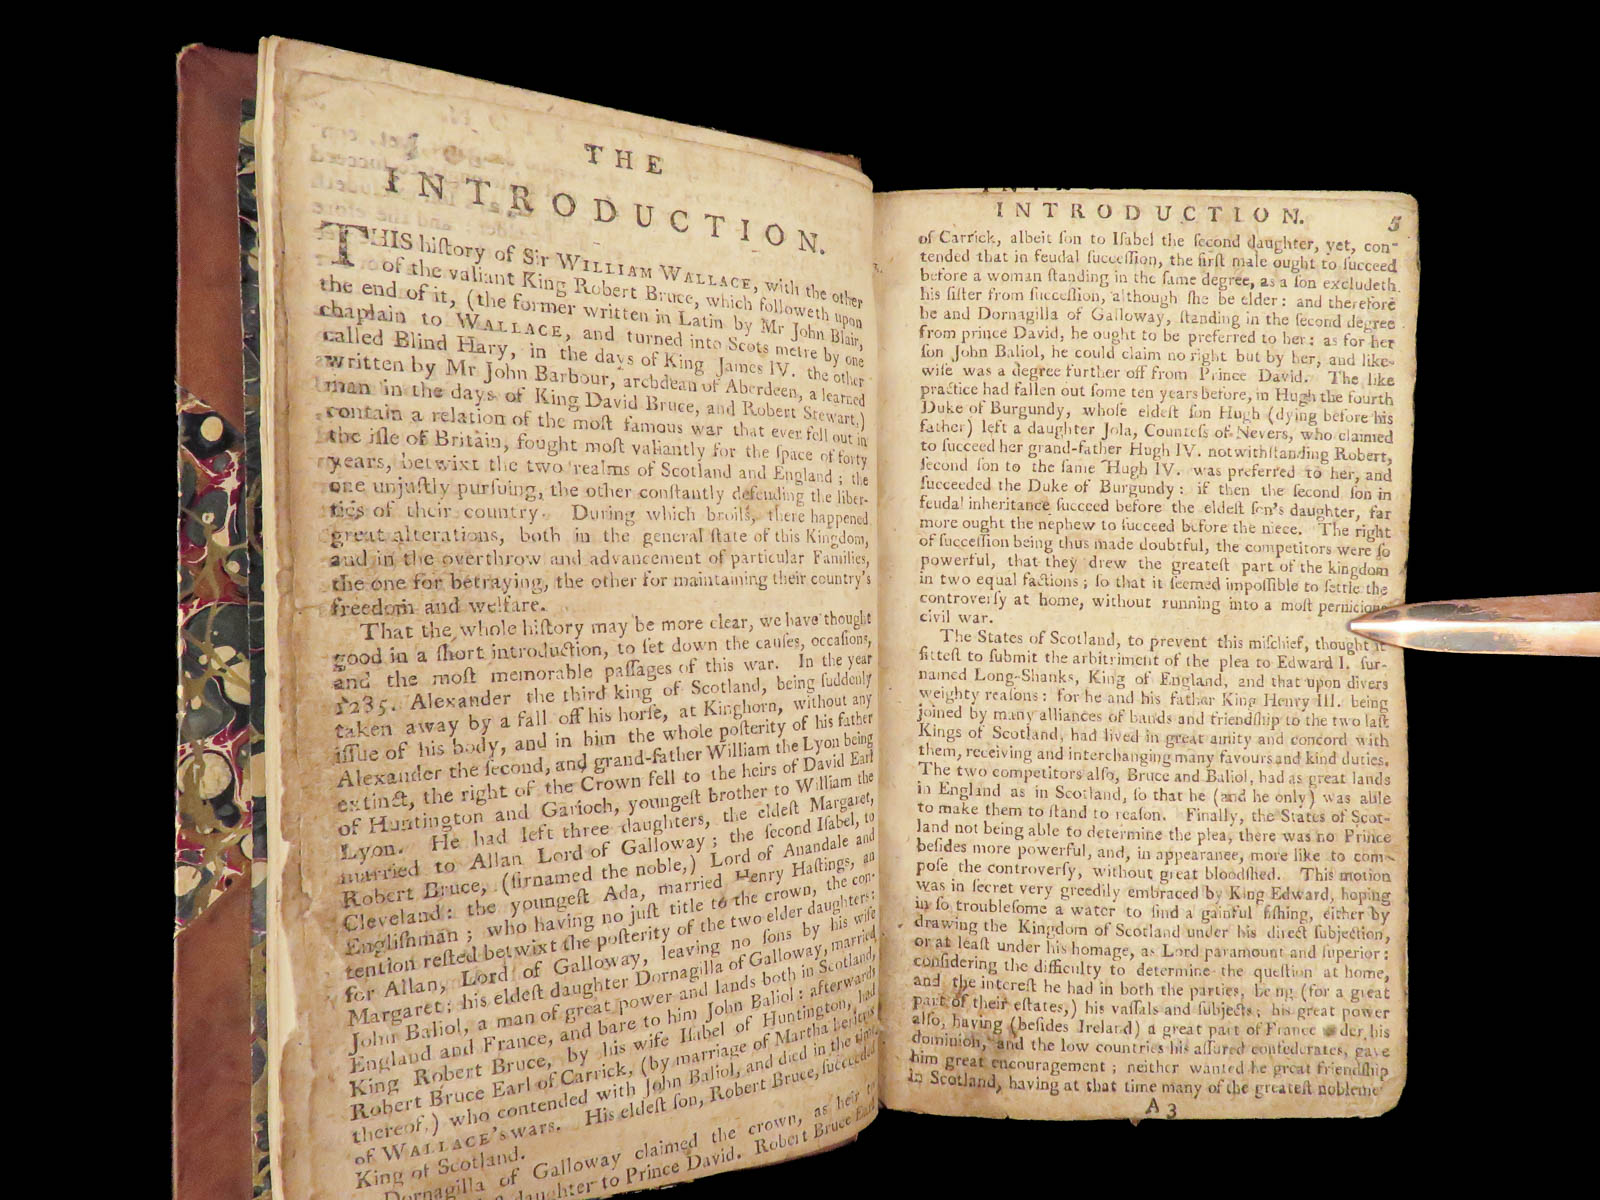 THE
INTRODUCTION.
THIS hiſtory of Sir WILLIAM WALLACE, with the other
of the valiant King Robert Bruce, which followeth upon
the end of it, (the former written in Latin by Mr John Blair,
chaplain to WALLACE, and turned into Scots metre by one
called Blind Hary, in the days of King James IV. the other
written by Mr John Barbour, archdean of Aberdeen, a learned
man in the days of King David Bruce, and Robert Stewart,)
contain a relation of the moſt famous war that ever fell out in
the iſle of Britain, fought moſt valiantly for the ſpace of forty
years, betwixt the two realms of Scotland and England; the
one unjuſtly purſuing, the other conſtantly defending the liber-
ties of their country. During which broils, there happened
great alterations, both in the general ſtate of this Kingdom,
and in the overthrow and advancement of particular Families,
the one for betraying, the other for maintaining their country's
freedom and welfare.
That the whole hiſtory may be more clear, we have thought
good in a ſhort introduction, to ſet down the cauſes, occaſions,
and the moſt memorable paſſages of this war. In the year
1285. Alexander the third king of Scotland, being ſuddenly
taken away by a fall off his horſe, at Kinghorn, without any
iſſue of his body, and in him the whole poſterity of his father
Alexander the ſecond, and grand-father William the Lyon being
extinct, the right of the Crown fell to the heirs of David Earl
of Huntington and Garioch, youngeſt brother to William the
Lyon. He had left three daughters, the eldeſt Margaret,
married to Allan Lord of Galloway; the ſecond Iſabel, to
Robert Bruce, (ſirnamed the noble,) Lord of Anandale and
Cleveland: the youngeſt Ada, married Henry Haſtings, an
Engliſhman; who having no juſt title to the crown, the con-
tention reſted betwixt the poſterity of the two elder daughters:
for Allan, Lord of Galloway, leaving no ſons by his wife
Margaret; his eldeſt daughter Dornagilla of Galloway, married
John Baliol, a man of great power and lands both in Scotland,
England and France, and bare to him John Baliol: afterwards
King Robert Bruce, by his wife Iſabel of Huntington, had
Robert Bruce Earl of Carrick, (by marriage of Martha heritrix
thereof,) who contended with John Baliol, and died in the time
of WALLACE's wars. His eldeſt ſon, Robert Bruce, ſucceeded
King of Scotland.
Dornagilla of Galloway claimed the crown, as heir to
daughter to Prince David. Robert Bruce Earl
INTRODUCTION. 5
of Carrick, albeit ſon to Iſabel the ſecond daughter, yet, con-
tended that in feudal ſucceſſion, the firſt male ought to ſucceed
before a woman ſtanding in the ſame degree, as a ſon excludeth
his ſiſter from ſucceſſion, although ſhe be elder: and therefore
he and Dornagilla of Galloway, ſtanding in the ſecond degree
from prince David, he ought to be preferred to her: as for her
ſon John Baliol, he could claim no right but by her, and like-
wiſe was a degree further off from Prince David. The like
practice had fallen out ſome ten years before, in Hugh the fourth
Duke of Burgundy, whoſe eldeſt ſon Hugh (dying before his
father) left a daughter Jola, Counteſs of Nevers, who claimed
to ſucceed her grand-father Hugh IV. notwithſtanding Robert,
ſecond ſon to the ſame Hugh IV. was preferred to her, and
ſucceeded the Duke of Burgundy: if then the ſecond ſon in
feudal inheritance ſucceed before the eldeſt ſon's daughter, far
more ought the nephew to ſucceed before the niece. The right
of ſucceſſion being thus made doubtful, the competitors were ſo
powerful, that they drew the greateſt part of the kingdom
in two equal factions; ſo that it ſeemed impoſſible to ſettle the
controverſy at home, without running into a moſt pernicious
civil war.
The States of Scotland, to prevent this miſchief, thought it
fitteſt to ſubmit the arbitriment of the plea to Edward I. ſur-
named Long-Shanks, King of England, and that upon divers
weighty reaſons: for he and his father King Henry III. being
joined by many alliances of bands and friendſhip to the two laſt
Kings of Scotland, had lived in great amity and concord with
them, receiving and interchanging many favours and kind duties.
The two competitors alſo, Bruce and Baliol, had as great lands
in England as in Scotland, ſo that he (and he only) was able
to make them to ſtand to reaſon. Finally, the States of Scot-
land not being able to determine the plea, there was no Prince
beſides more powerful, and, in appearance, more like to com-
poſe the controverſy, without great bloodſhed. This motion
was in ſecret very greedily embraced by King Edward, hoping
in ſo troubleſome a water to find a gainful fiſhing, either by
drawing the Kingdom of Scotland under his direct ſubjection,
or at leaſt under his homage, as Lord paramount and ſuperior:
conſidering the difficulty to determine the queſtion at home,
and the intereſt he had in both the parties, being (for a great
part of their eſtates,) his vaſſals and ſubjects; his great power
alſo, having (beſides Ireland) a great part of France der his
dominion, and the low countries his aſſured confederates, gave
him great encouragement; neither wanted he great friendſhip
in Scotland, having at that time many of the greateſt nobleme
A 3